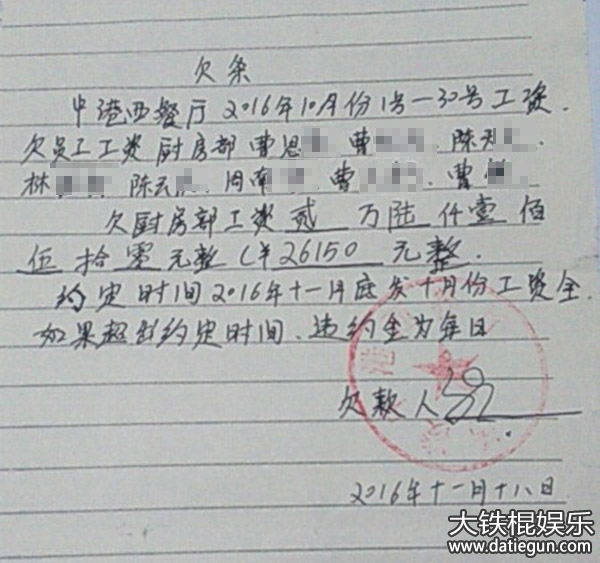 欠条
中港西餐厅2016年10月份1号—30号工资.
欠员工工资厨房部曹思 曹 陈天
林 陈云 周南 曹 曹
欠厨房部工资贰万陆仟壹佰
伍拾零元整(¥26150元整.
约定时间2016年十一月底发十月份工资全.
如果超出约定时间、违约金为每日
欠款人
2016年十一月十八日
大铁棍娱乐
www.datiegun.com